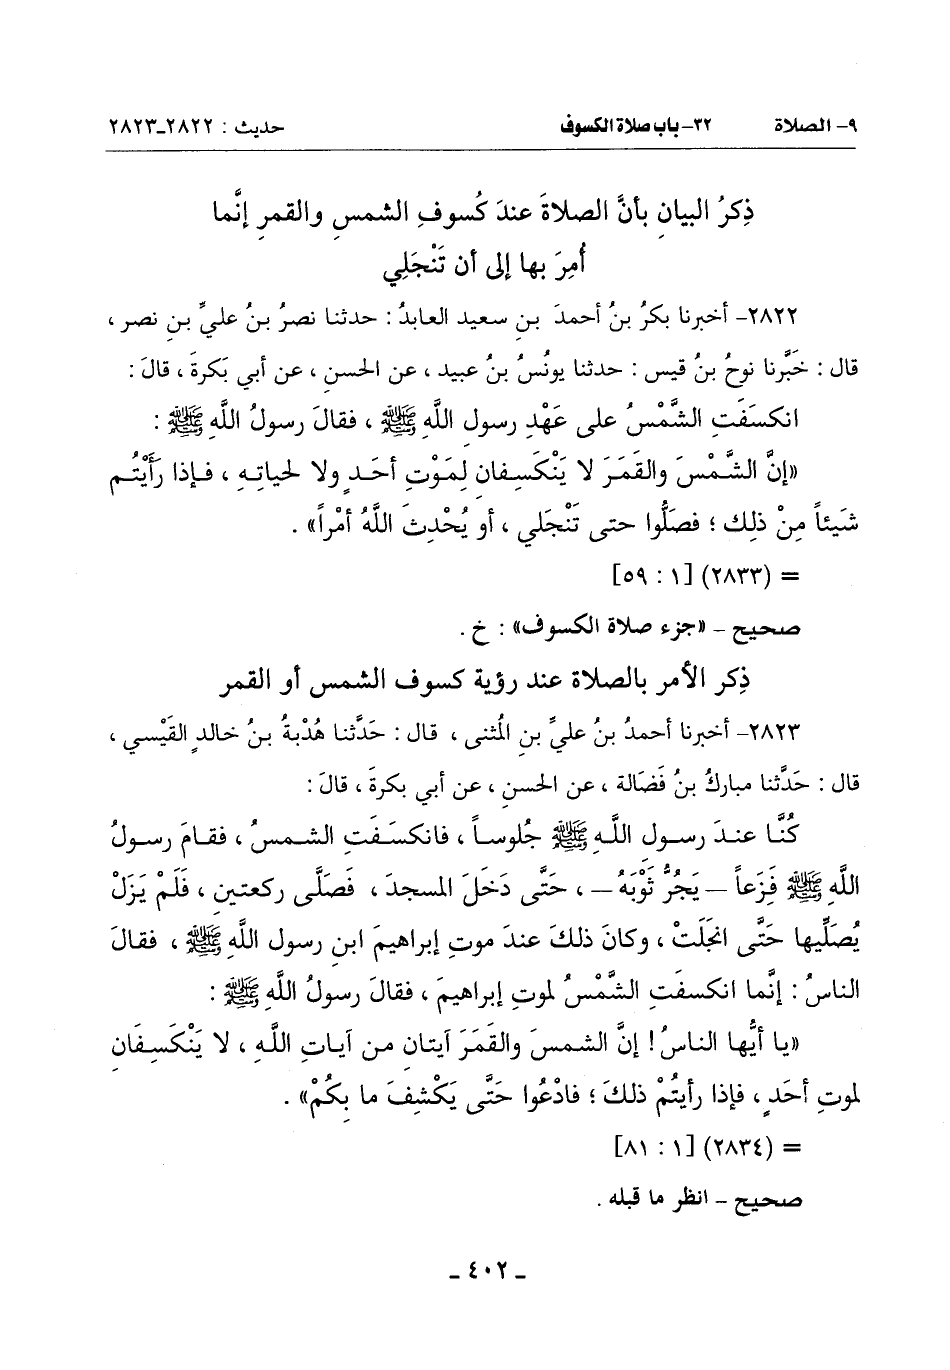 ٩- الصلاة ٣٢- باب صلاة الكسوف حديث : ٢٨٢٢-٢٨٢٣
ذِكرُ البيانِ بأنَّ الصلاةَ عندَ كُسوفِ الشمسِ والقمرِ إنَّما
أُمِرَ بها إلى أن تَنْجَلِي
٢٨٢٢- أخبرنا بكرُ بنُ أحمدَ بنِ سعيد العابدُ : حدثنا نصرُ بنُ عليِّ بنِ نصر ،
قال : خَبَّرنا نوحُ بنُ قيس : حدثنا يونُسُ بنُ عبيد ، عن الحسنِ ، عن أبي بَكرةَ ، قالَ :
انكسَفَتِ الشَّمْسُ على عَهْدِ رسولِ اللَّهِ ﷺ ، فقالَ رسولُ اللَّهِ ﷺ :
«إنَّ الشَّمْسَ والقَمَرَ لا يَنْكَسِفانِ لِمَوْتِ أحَدٍ ولا لحياتِهِ ، فإذا رَأَيْتُم
شَيئاً مِنْ ذلِك ؛ فصَلُّوا حتى تَنْجَلي ، أو يُحْدِثَ اللَّهُ أمْراً» .
= (٢٨٣٣) [١ : ٥٩]
صحيح - «جزء صلاة الكسوف» : خ .
ذِكر الأمر بالصلاة عند رؤية كسوف الشمس أو القمر
٢٨٢٣- أخبرنا أحمدُ بنُ عليِّ بنِ المُثنى ، قال : حَدَّثنا هُدْبةُ بنُ خالدٍ القَيْسي ،
قال : حَدَّثنا مباركُ بنُ فَضَالة ، عن الحسنِ ، عن أبي بكرةَ ، قالَ :
كُنَّا عندَ رسولِ اللَّهِ ﷺ جُلوساً ، فانكسَفَتِ الشمسُ ، فقامَ رسولُ
اللَّهِ ﷺ فَزِعاً - يَجُرُّ ثَوْبَهُ - ، حَتَّى دَخَلَ المسجدَ ، فَصَلَّى ركعتينِ ، فَلَمْ يَزَلْ
يُصَلِّيها حَتَّى انجَلَتْ ، وكانَ ذلكَ عندَ موتِ إبراهيمَ ابنِ رسول اللَّهِ ﷺ ، فقالَ
الناسُ : إنَّما انكسفتِ الشَّمْسُ لموتِ إبراهيمَ ، فقالَ رسولُ اللَّهِ ﷺ :
«يا أيُّها الناسُ! إنَّ الشمسَ والقَمَرَ آيتانِ من آياتِ اللَّهِ ، لا يَنْكَسِفَانِ
لموتِ أحَدٍ ، فإذا رأيتُمْ ذلكَ ؛ فادْعُوا حَتَّى يَكْشِفَ ما بِكُمْ» .
= (٢٨٣٤) [١ : ٨١]
صحيح - انظر ما قبله .
- ٤٠٢ -